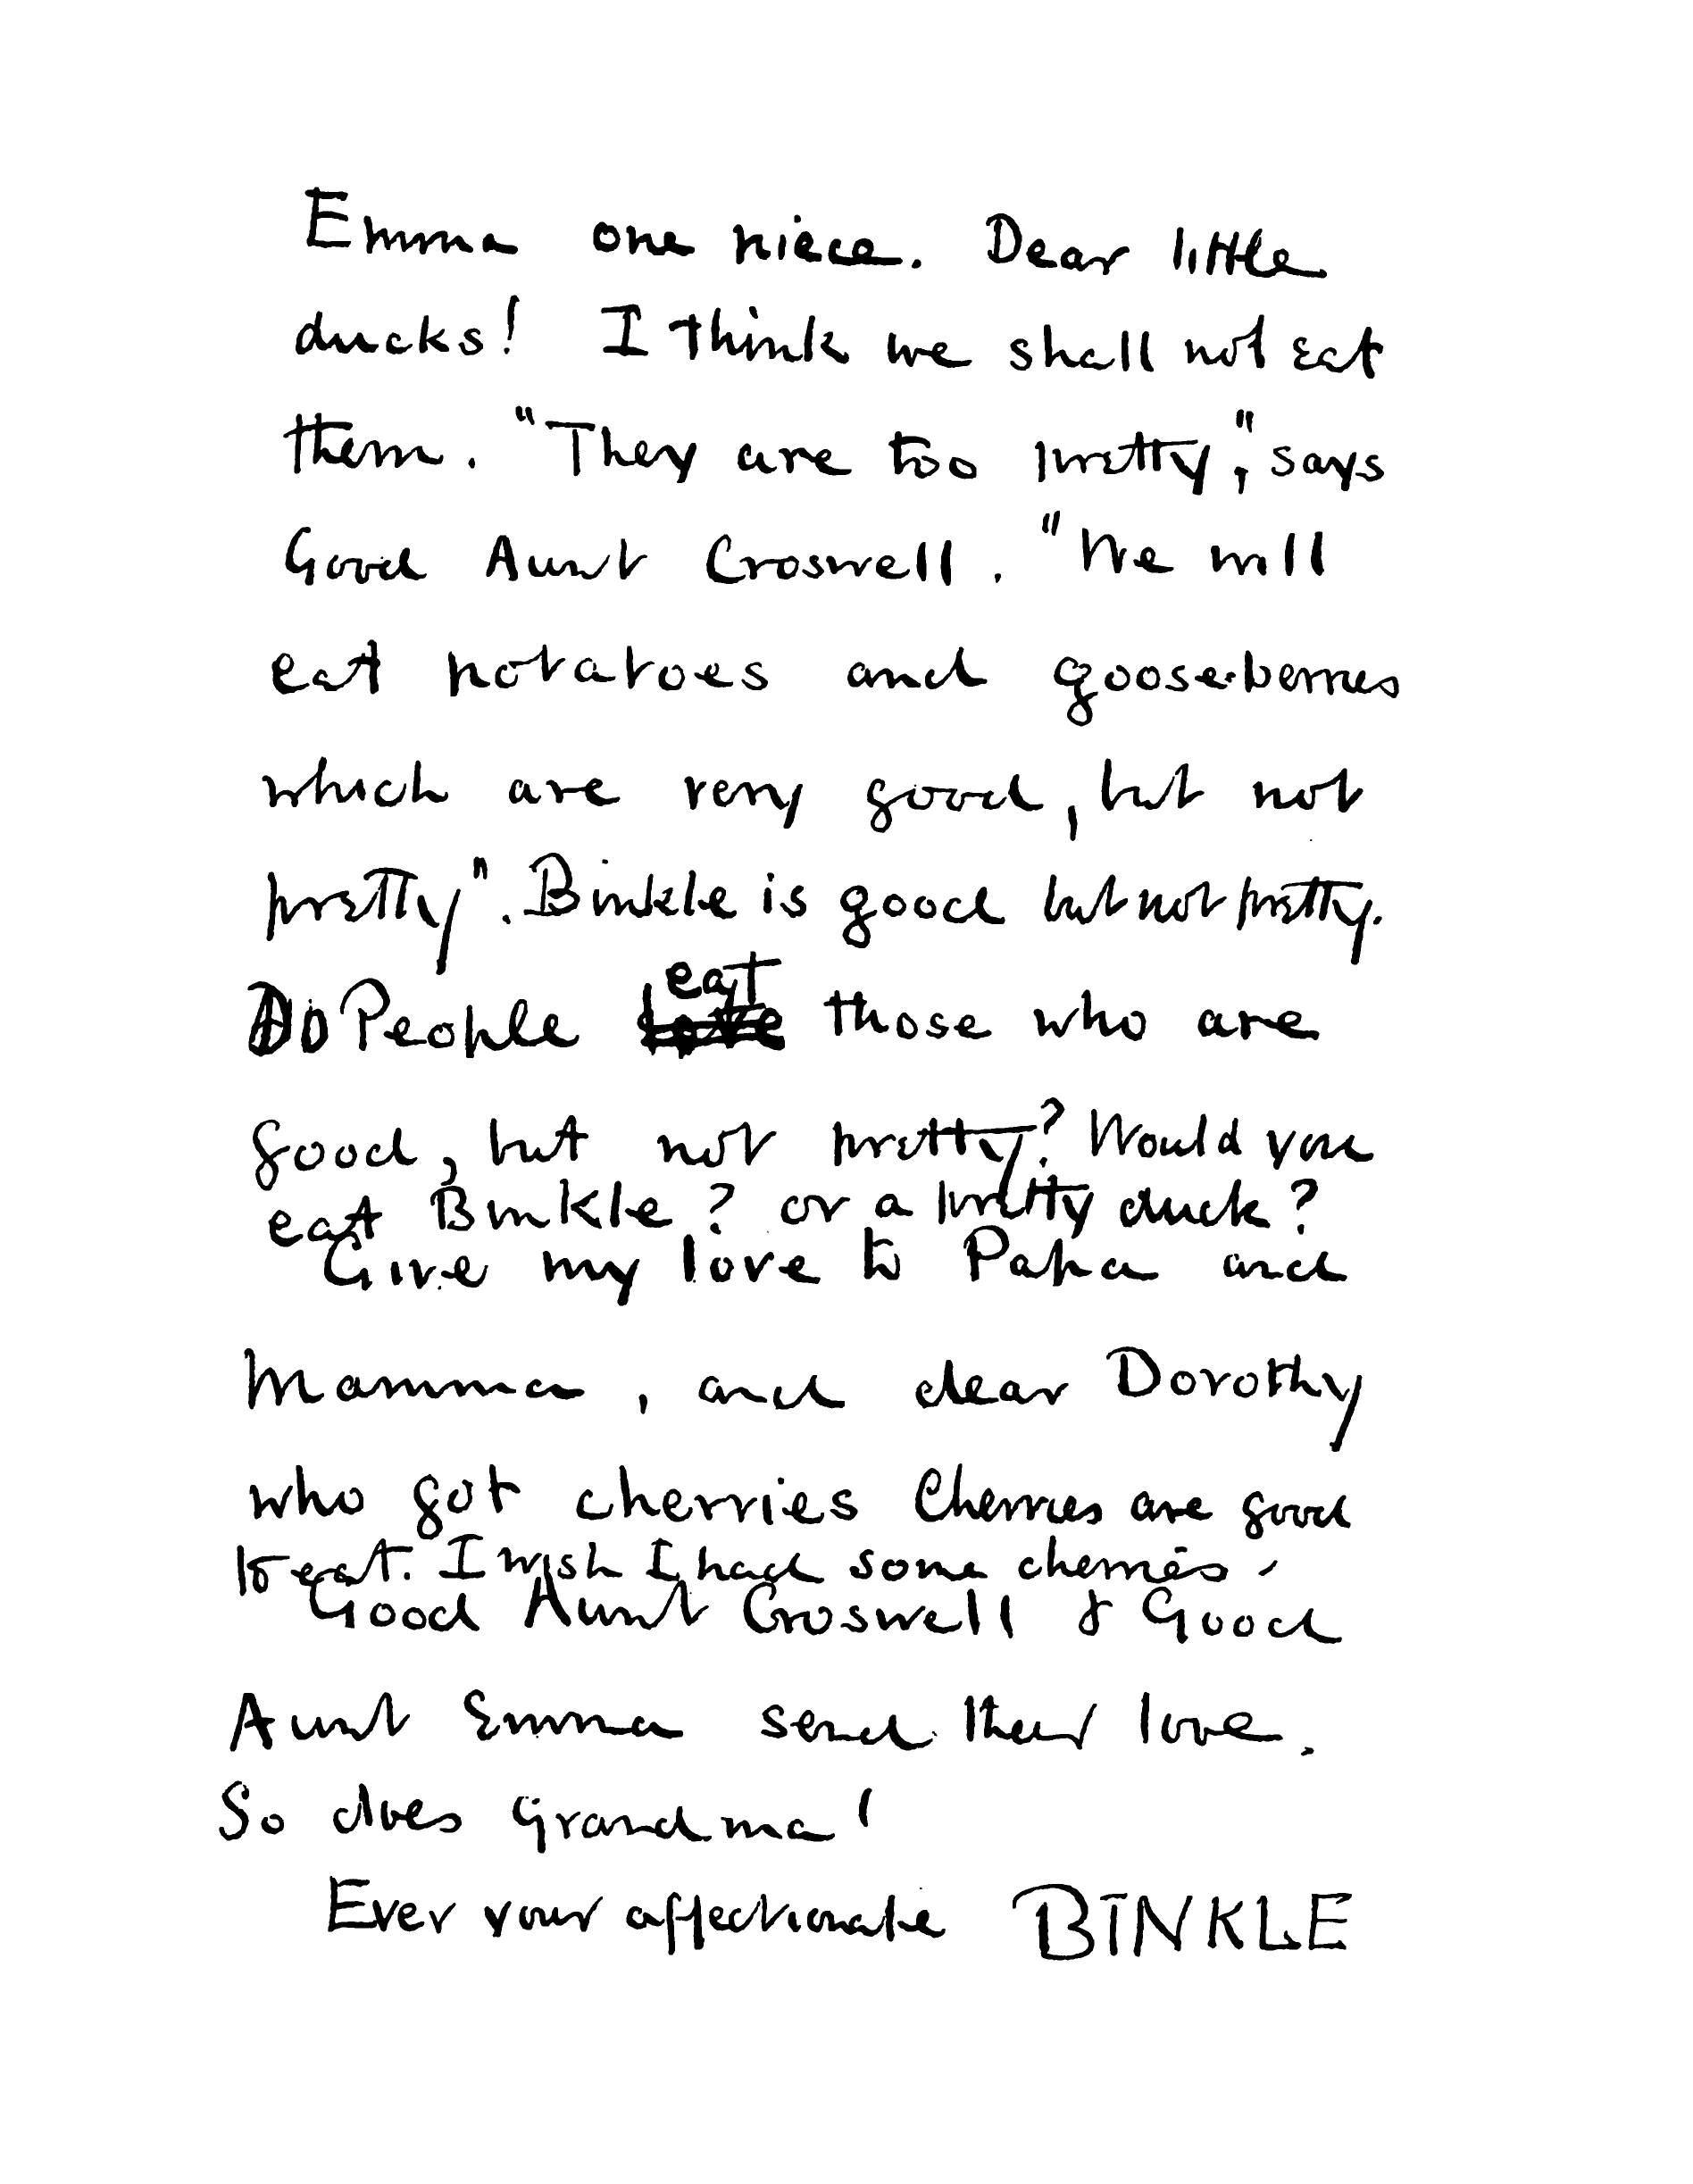 Emma one niece. Dear little
ducks! I think we shall not eat
them. "They are too pretty," says
Good Aunt Croswell. "We will
eat potatoes and gooseberries
which are very good, but not
pretty". Binkle is good but not pretty.
Do People eat those who are
good, but not pretty? Would you
eat Binkle? or a pretty duck?
Give my love to Papa and
Mamma, and dear Dorothy
who got cherries Cherries are good
to eat. I wish I had some cherries.
Good Aunt Croswell & Good
Aunt Emma send their love.
So does Grandma!
Ever your affectionate BINKLE